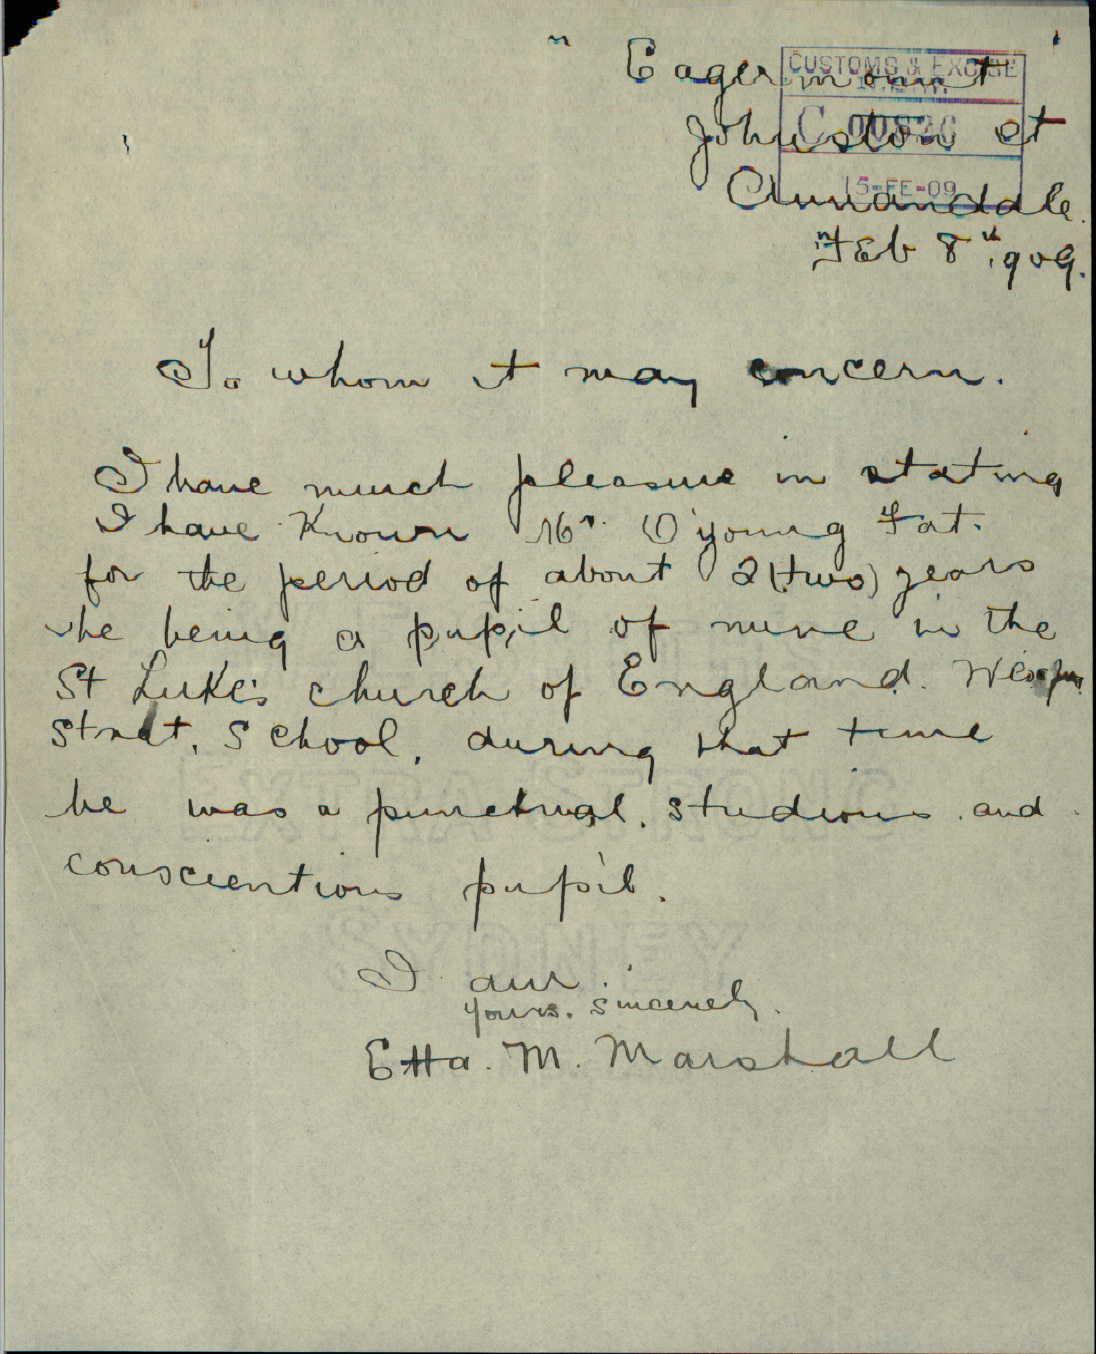 " Eagermount "
Johnston St
Annandale.
Feb 8th, 1909.
CUSTOMS & EXCISE
15-FE-09
To whom it may concern.
I have much pleasure in stating
I have Known Mr. O'young Fat.
for the period of about 2 (two) years
he being a pupil of mine in the
St Luke's church of England.
Street, School, during that time
he was a punctual, studious and
conscientious pupil.
I am.
yours. sincerely.
Etta. M. Marshall